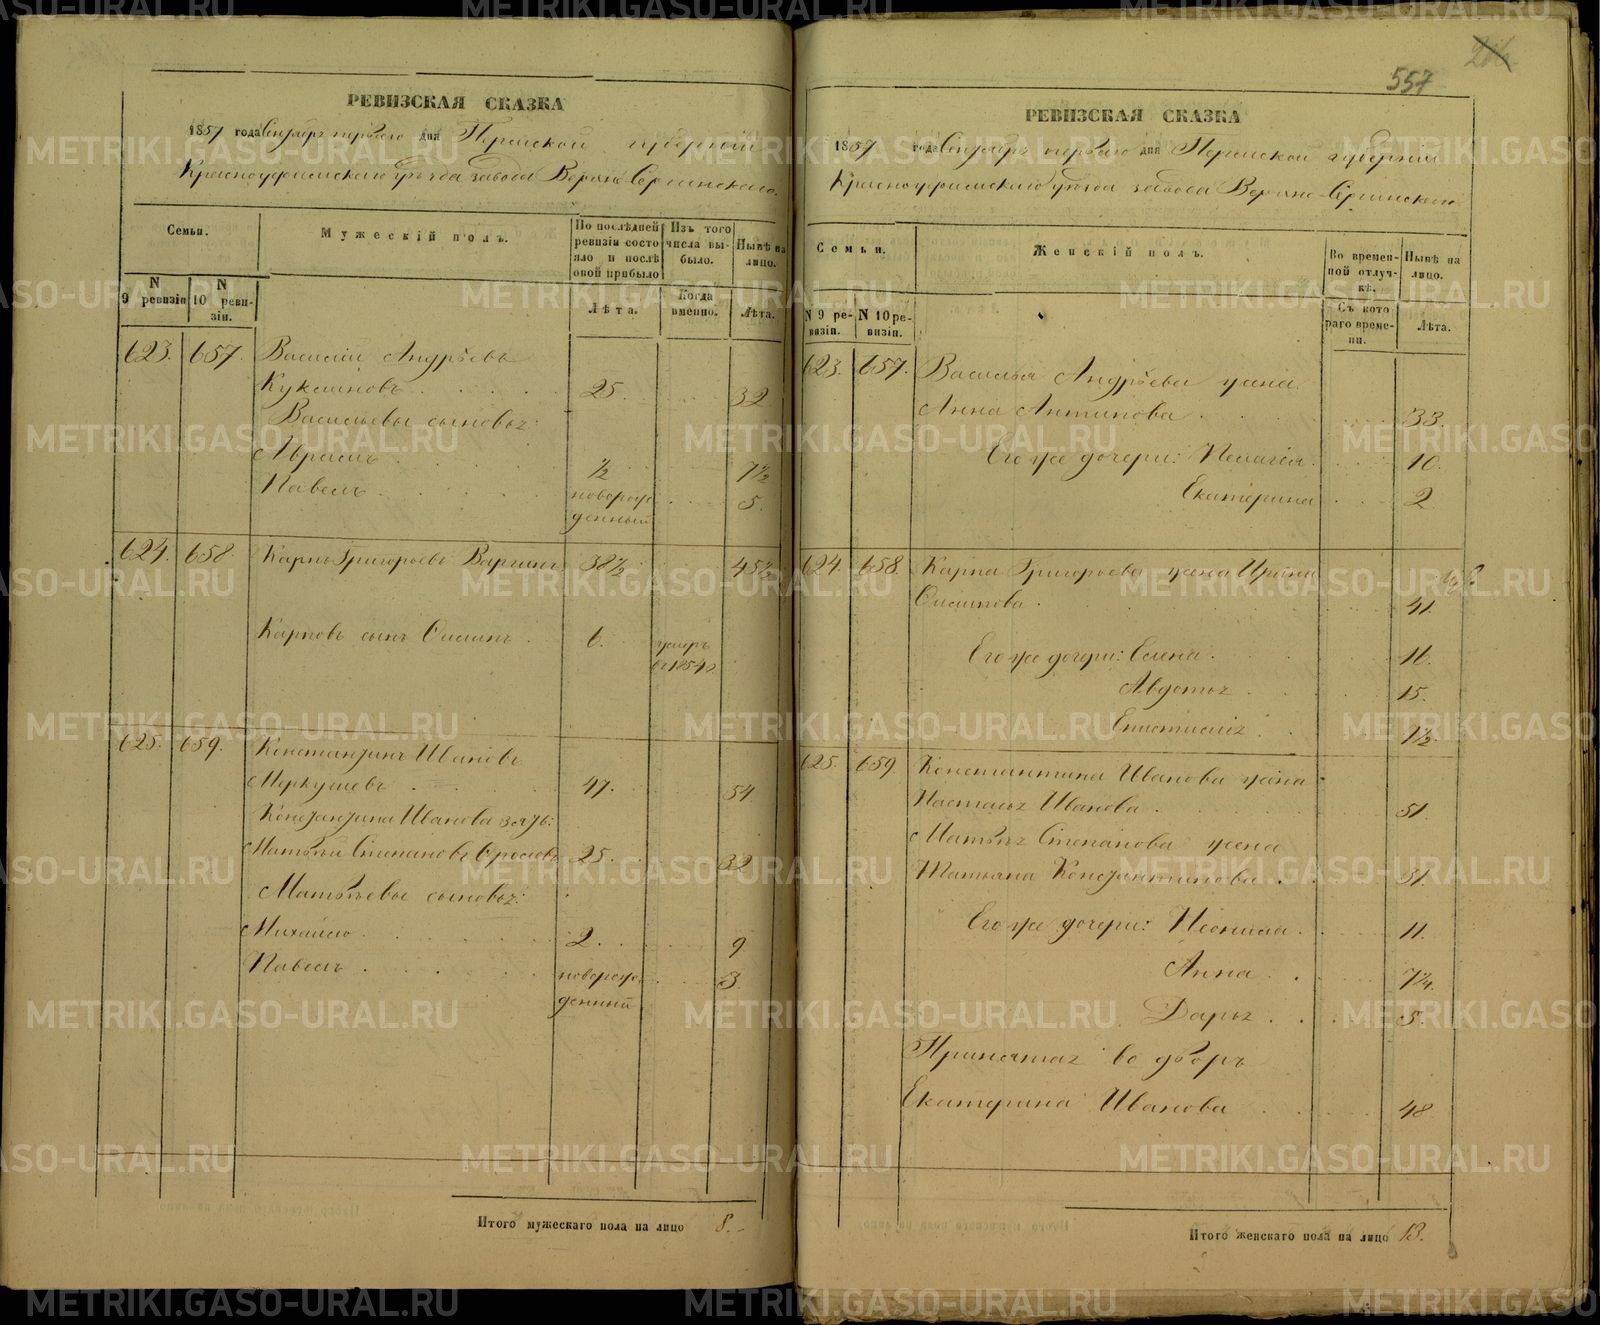 557
РЕВИЗСКАЯ СКАЗКА
1857 года Сентября первого дня Пермской губернии
Красноуфимского уѣзда завода Верхне-Сергинского
Семьи.
Мужескій полъ.
По послѣдней ревизіи состояло и послѣ оной прибыло
Изъ того числа выбыло.
Нынѣ на лицо.
N 9 ревизіи
N 10 ревизіи.
Лѣта.
Когда именно.
Лѣта.
623. 657. Василій Андрѣевъ
25. 32
Васильевы сыновья:
Абрамъ ½ 7½
Павелъ новорожденный 5.
624. 658. Карпъ Григорьевъ Варгинъ 38½ 45½
Карповъ сынъ Осипъ 6. умеръ въ 1854 г.
625. 659. Константинъ Ивановъ
Меркушевъ 47. 54
Константина Иванова зять:
Матвѣй Степановъ 25. 32
Матвѣевы сыновья:
Михайло 2. 9
Павелъ новорожденный 3
Итого мужескаго пола на лицо 8.
РЕВИЗСКАЯ СКАЗКА
1857 года Сентября первого дня Пермской губерніи
Красноуфимского уѣзда завода Верхне-Сергинского
Семьи.
Женскій полъ.
Во временной отлучкѣ.
Нынѣ на лицо.
N 9 ревизіи.
N 10 ревизіи.
Съ котораго времени.
Лѣта.
623. 657. Василья Андрѣева жена
Анна Антипова 33.
Его же дочери: Пелагея 10.
Екатерина 2
624. 658. Карпа Григорьева жена Ирина
Осипова 41.
Его же дочери: Елена 16.
Авдотья 15.
Епистимія 1½
625. 659. Константина Иванова жена
Настасья Иванова 51.
Матвѣя Степанова жена
Татьяна Константинова 31.
Его же дочери: Неонила 11.
Анна 7¼
Дарья 5.
Принятая во дворъ
Екатерина Иванова 48
Итого женскаго пола на лицо 13.
METRIKI.GASO-URAL.RU